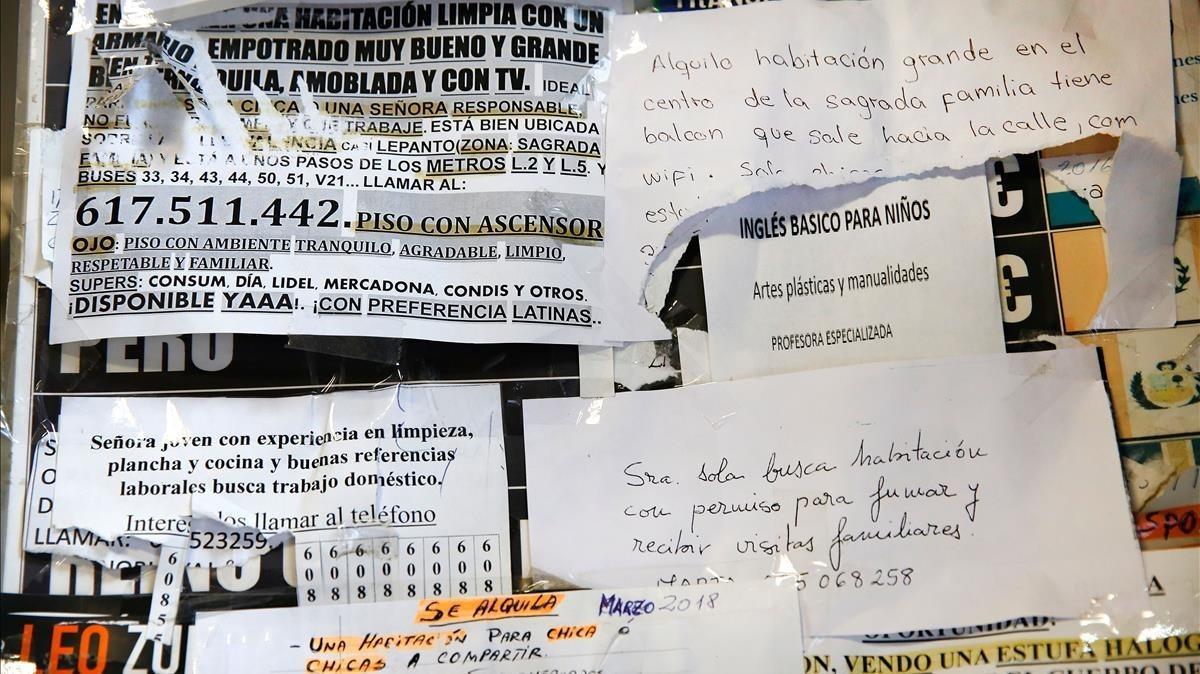 UNA HABITACIÓN LIMPIA CON UN
ARMARIO EMPOTRADO MUY BUENO Y GRANDE
AMOBLADA Y CON TV. IDEAL
CHICA O UNA SEÑORA RESPONSABLE,
NO QUE TRABAJE. ESTÁ BIEN UBICADA
LEPANTO(ZONA: SAGRADA
PASOS DE LOS METROS L.2 Y L.5. Y
BUSES 33, 34, 43, 44, 50, 51, V21... LLAMAR AL:
617.511.442. PISO CON ASCENSOR
OJO: PISO CON AMBIENTE TRANQUILO, AGRADABLE, LIMPIO,
RESPETABLE Y FAMILIAR.
SUPERS: CONSUM, DÍA, LIDEL, MERCADONA, CONDIS Y OTROS.
¡DISPONIBLE YAAA!. ¡CON PREFERENCIA LATINAS..
Alquilo habitación grande en el
centro de la sagrada familia tiene
balcon que sale hacia la calle, com
wifi.
2016
€
€
INGLÉS BASICO PARA NIÑOS
Artes plásticas y manualidades
PROFESORA ESPECIALIZADA
PERÚ
Señora joven con experiencia en limpieza,
plancha y cocina y buenas referencias
laborales busca trabajo doméstico.
llamar al teléfono
LLAMAR: 523259
608 608 608 608 608 608 608 608
Sra. sola busca habitación
con permiso para fumar y
recibir visitas familiares.
5 068 258
REINO
SE ALQUILA MARZO 2018
- UNA HABITACIÓN PARA CHICA Ó
CHICAS A COMPARTIR.
LEO ZU
OPORTUNIDAD:
VENDO UNA ESTUFA HALOG